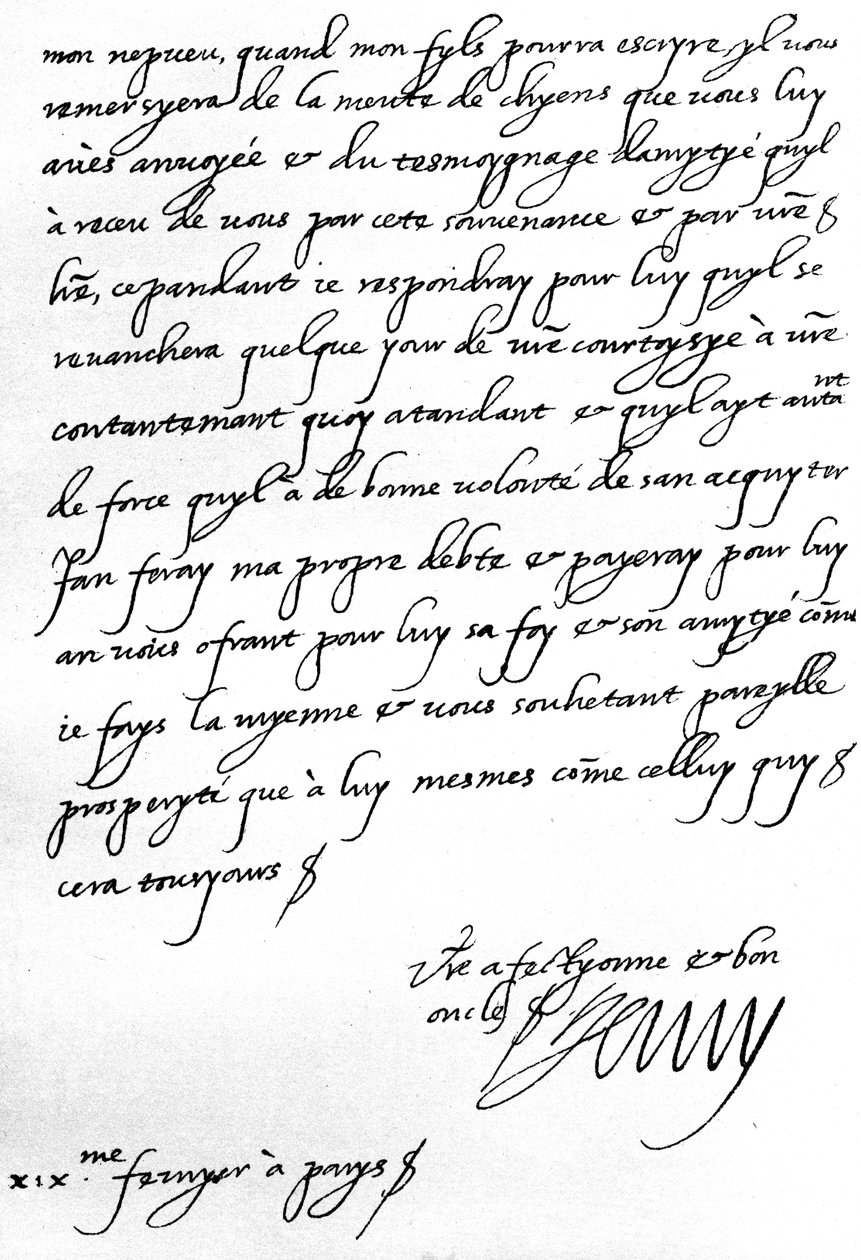 mon nepueu, quand mon fyls pourra escryre, yl vous
remersyera de la meute de chyens que vous luy
aués anuoyée & du tesmoygnage damytyé quyl
à receu de vous par cete souuenance & par vr̄e
lr̄e, cepandant ie respondray pour luy quyl se
reuanchera quelque your de vr̄e courtoysye à vr̄e
contantemant quoy atandant & quyl ayt autant
de force quyl à de bonne volonté de san acquyter
Jan feray ma propre debte & payeray pour luy
an vous ofrant pour luy sa foy & son amytyé cōme
ie fays la myenne & vous souhetant pareylle
prosperyté que à luy mesmes cōme celluy quy
cera tousyours
Vr̄e afectyonne & bon
oncle Henry
xix.me feuryer à parys